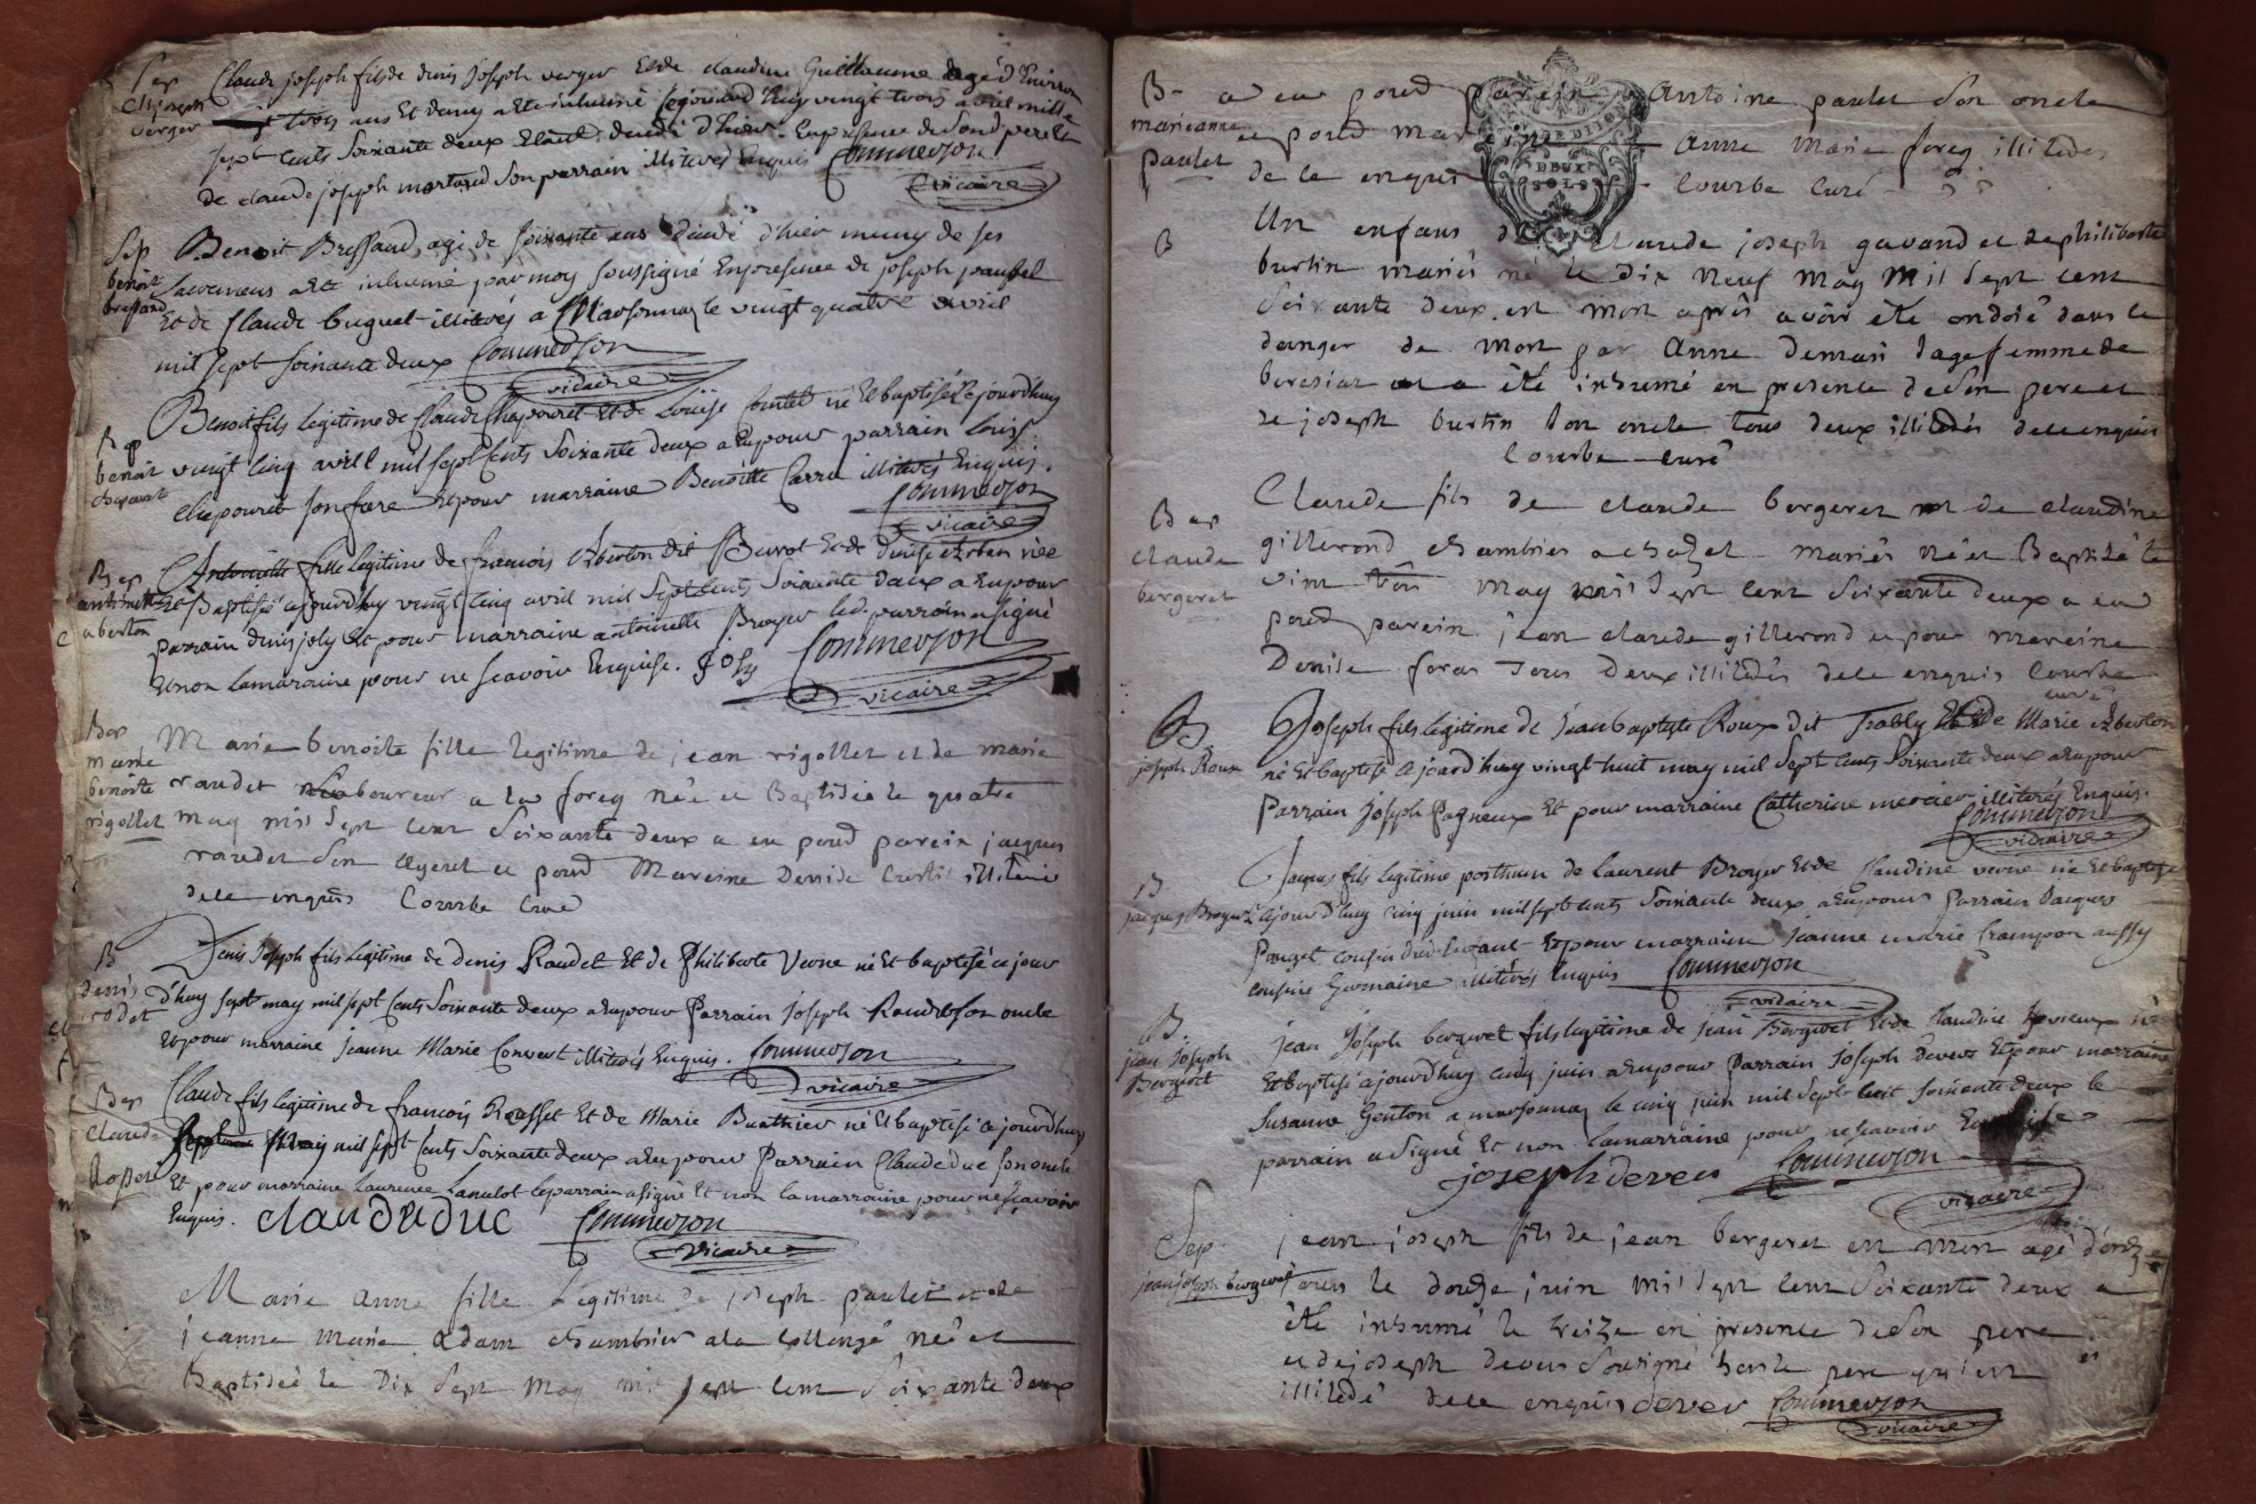 Sep
Cl: joseph
verger
Claude joseph fils de denis joseph verger Et de claudine Guillaume agé d'Environ
trois ans Et demy a Eté inhumé cejourd'huy vingt trois avril mille
sept cents soixante deux Etant decedé d'hier. En presence de sond pere Et
de claude joseph mortared son parrain illiterés Enquis Commerson
vicaire
Sep
benoit
bressand
Benoit Bressand, agé de soixante ans decedé d'hier muny de ses
sacremens a Eté inhumé par moy soussigné En presence de joseph paubel
Et de Claude buguet illiterés a Marsonnaz le vingt quatre avril
mil sept soixante deux Commerson
vicaire
Bap
benoit
chapouret
Benoit fils legitime de Claude Chapouret Et de Loüise Comtet né Et baptisé cejourd'huy
vingt cinq avril mil sept cents soixante deux a Eu pour parrain Louis
chapouret son frere Et pour marraine Benoitte Carru illiterés Enquis.
Commerson
vicaire
Bap
antoinette
aberton
Antoinette fille legitime de francois Aberton dit Buirot Et de denise Erban née
Et Baptisée cejourd'huy vingt cinq avril mil sept cents soixante deux a Eu pour
parrain denis joly Et pour marraine antoinette Broyer led. parrain a signé
Et non la maraine pour ne scavoir Enquise. Joly Commerson
vicaire
Bap
marie
benoite
rigollet
Marie benoite fille legitime de jean rigollet et de marie
raudet laboureur a la foreq née et Baptisée le quatre
may mil sept cent soixante deux a eu pour parein jacques
raudet son ayeul et pour Mareine Denise Curtil illiterés
de ce enquis Courbe Curé
B
denis
rodet
Denis Joseph fils legitime de denis Raudet Et de Philiberte Verne né Et baptisé ce jour
d'huy sept may mil sept cents soixante deux a Eu pour Parrain Joseph Raudet son oncle
Et pour marraine Jeanne Marie Convert illiterés Enquis. Commerson
vicaire
Bap
Claude
Rosset
Claude fils legitime de francois Rosset Et de Marie Buathier né Et baptisé cejourd'huy
may mil sept cents soixante deux a Eu pour Parrain Claude duc son oncle
Et pour marraine Laurence Lanulot le parrain a signé Et non la marraine pour ne scavoir
Enquis. claududuc Commerson
vicaire
Marie anne fille Legitime de joseph paulet et de
jeanne marie adam chambrier a la collonge née et
Baptisée le Dix sept may mil sept cent soixante deux
B
marie anne
paulet
a eu pour parein Antoine paulet son oncle
et pour mareine Anne Marie foreq illiterés
de ce enquis Courbe Curé
DEUX
SOLS
B
Un enfans de Claude joseph gavand et de philiberte
burtin mariés né le dix neuf may mil sept cent
soixante deux est mort après avoir été ondoié dans le
danger de mort par Anne Demari sagefemme de
beresiat et a été inhumé en presence de son pere et
de joseph burtin son oncle tous deux illiterés de ce enquis
Courbe curé
Bap
claude
bergeret
Claude fils de claude bergeret et de claudine
gillerond chambrier a chazel mariés né et Baptisé le
vint trois may mil sept cent soixante deux a eu
pour parein jean claude gillerond et pour mareine
Denise foras tous deux illiterés de ce enquis Courbe
curé
B
joseph Roux
Joseph fils legitime de Jean baptiste Roux dit Trably Et de Marie Aberton
né Et baptisé cejourd'huy vingt huit may mil sept cents soixante deux a Eu pour
Parrain Joseph Pagneux Et pour marraine Catherine mercier illiterés Enquis.
Commerson
vicaire
B
jacques Broyer
Jacques fils legitime posthum de Laurent Broyer Et de Claudine verne né Et baptisé
cejourd'huy cinq juin mil sept cents soixante deux a Eu pour Parrain Jacques
Pauget cousin dud. Enfant Et pour marraine Jeanne marie Crampon aussy
cousine Germaine illiterés Enquis Commerson
vicaire
B.
jean Joseph
Bergeret
jean Joseph bergeret fils legitime de Jean Bergeret Et de Claudine Revreux né
Et baptisé cejourd'huy cinq juin a Eu pour Parrain Joseph Devers Et pour marraine
Susanne Genton a marsonnaz le cinq juin mil sept cent soixante deux le
parrain a signé Et non la marraine pour ne scavoir Enquise
joseph deveu Commerson
vicaire
Sep
jean joseph bergeret
jean joseph fils de jean bergeret est mort agé d'onze
jours le douze juin mil sept cent soixante deux a
été inhumé le treize en presence de son pere
et de joseph deveu sousigné hors le pere qui est
illiteré de ce enquis deveu Commerson
vicaire